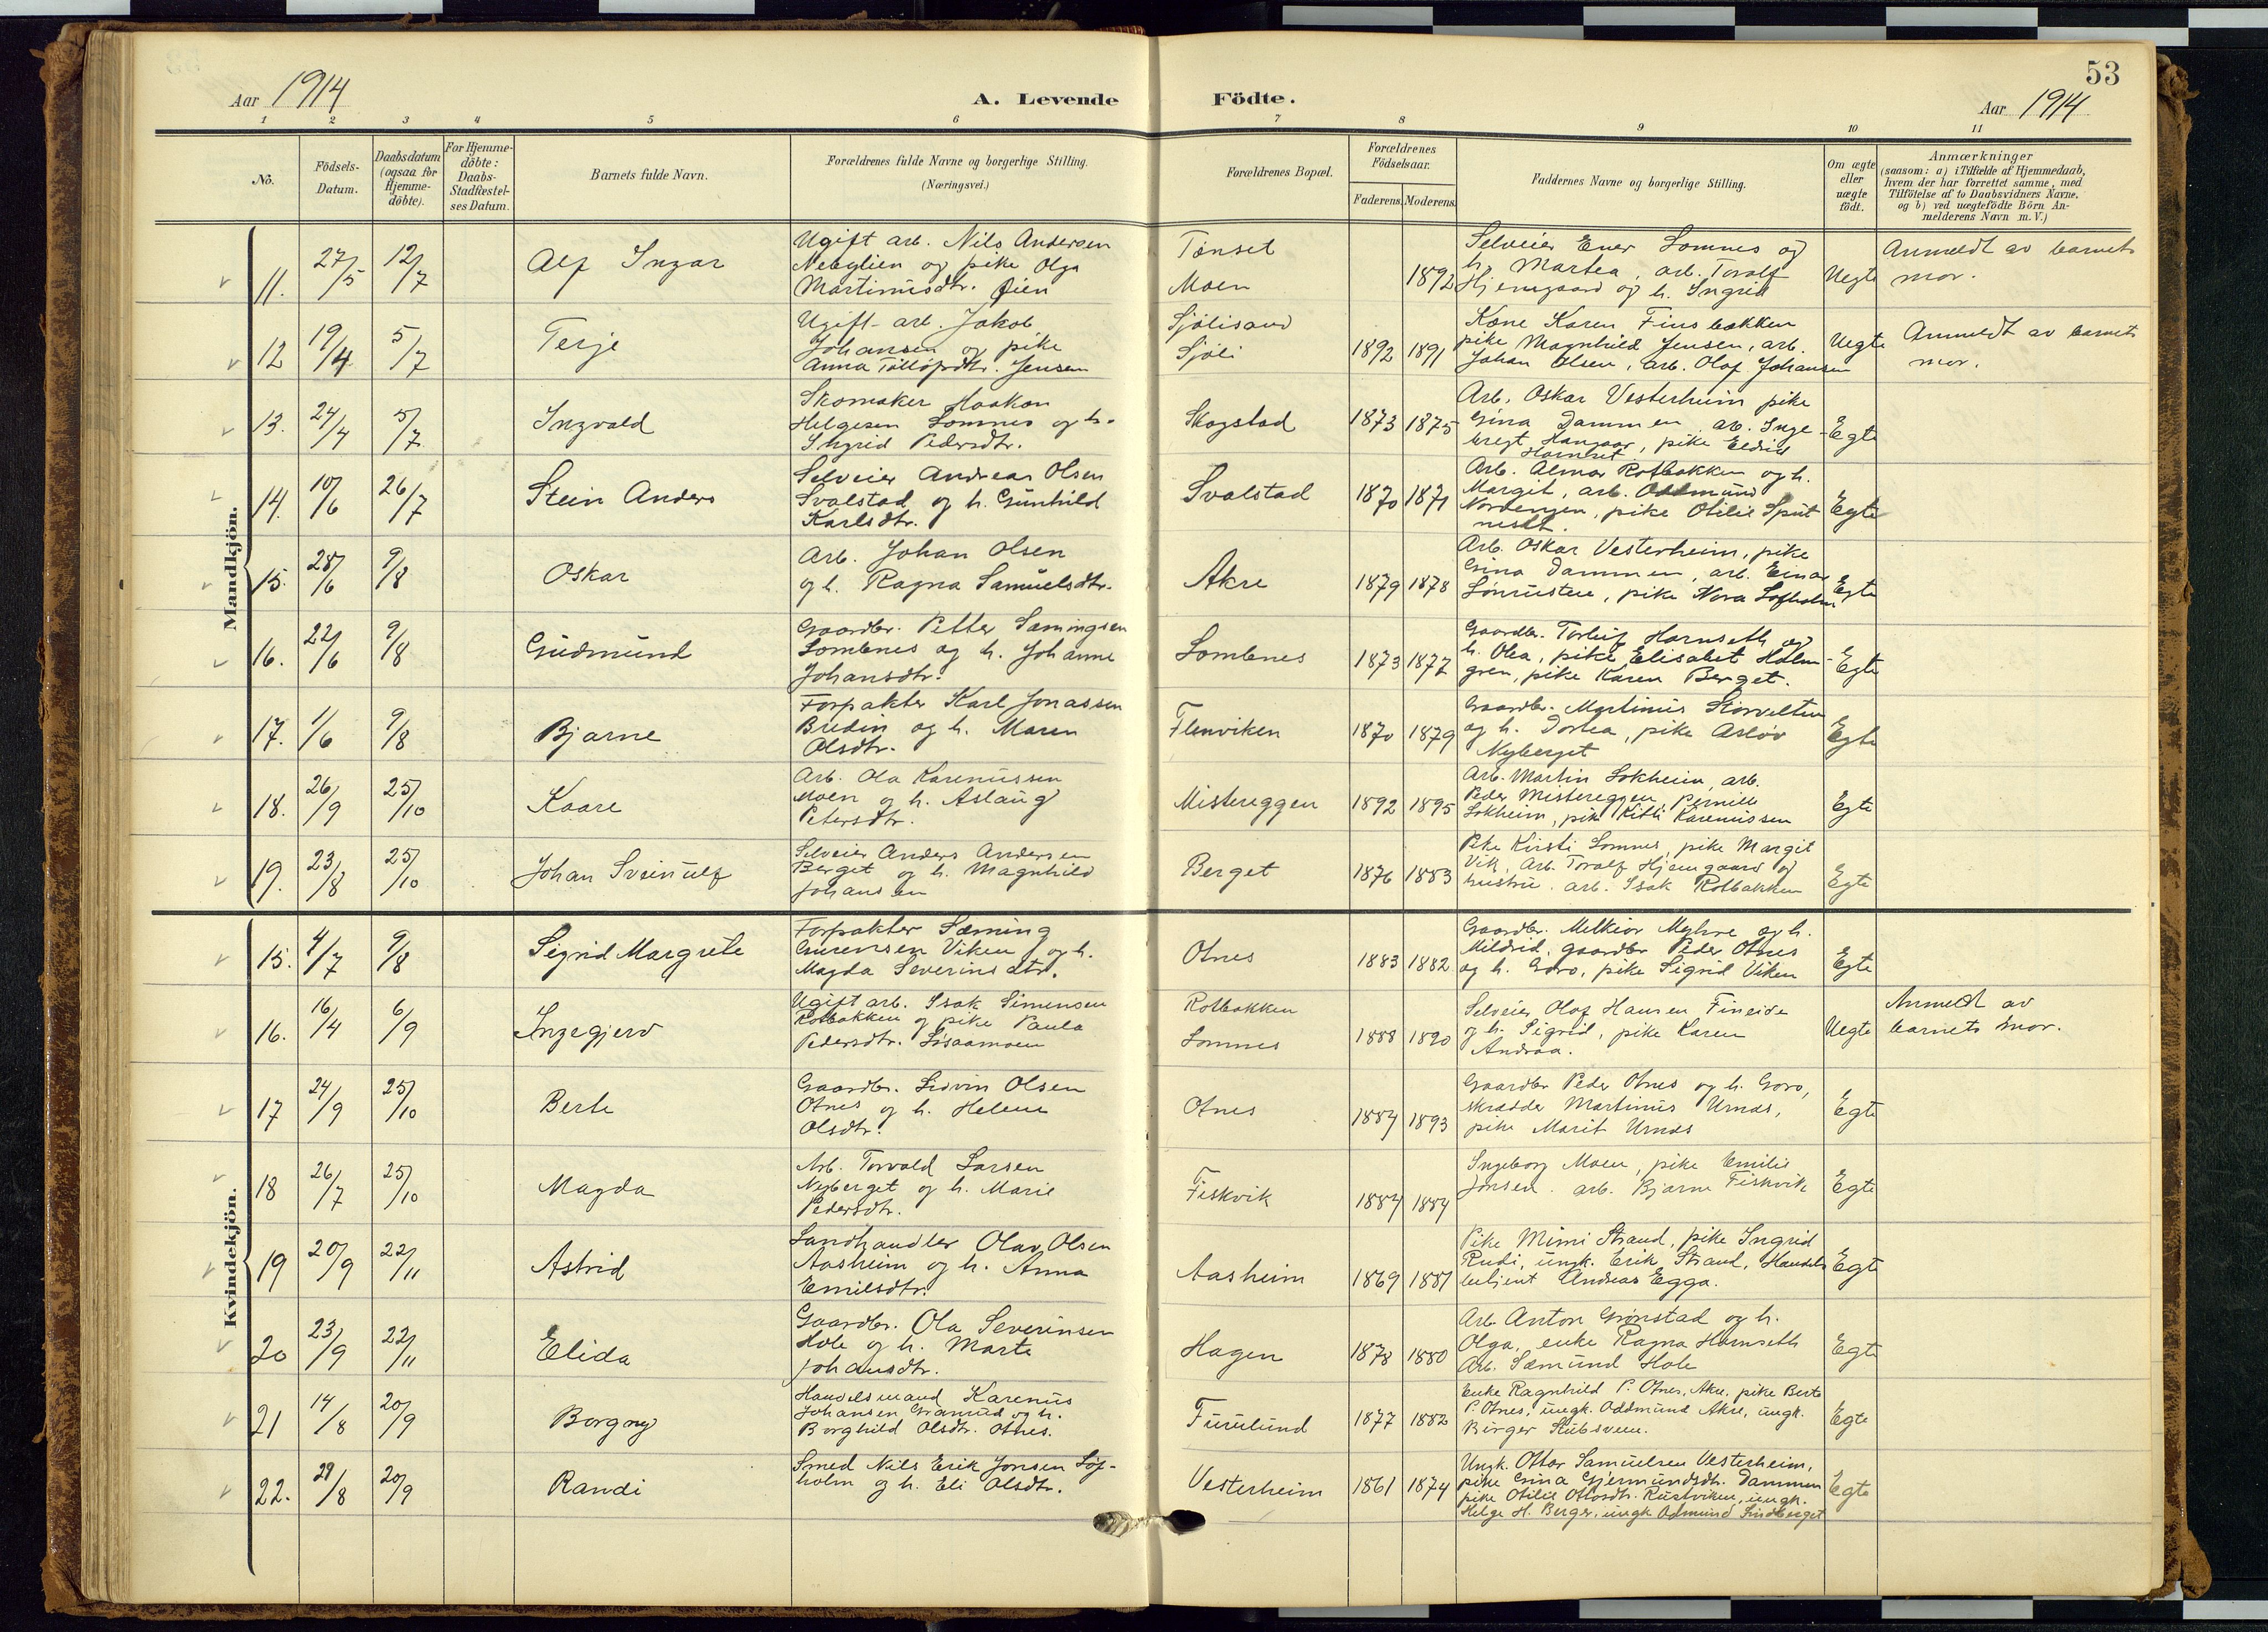 Aar 1914
A. Levende Födte.
53
Aar 1914
1 2 3 4 5 6 7 8 9 10 11
No.
Födsels-Datum.
Daabsdatum (ogsaa for Hjemme-döbte).
For Hjemme-döbte: Daabs-Stadfæstel-ses Datum.
Barnets fulde Navn.
Forældrenes fulde Navne og borgerlige Stilling.
(Næringsvei.)
Forældrenes Bopæl.
Forældrenes Födselsaar.
Faderens. Moderens.
Faddernes Navne og borgerlige Stilling.
Om ægte eller uægte födt.
Anmærkninger
(saasom: a) i Tilfælde af Hjemmedaab,
hvem der har forrettet samme, med
Tilföielse af to Daabsvidners Navne,
og b) ved uægtefödte Börn An-
melderens Navn m. V.)
Mandkjön.
11. 27/5 12/7 Alf Ingar
Ugift arb. Nils Andersen
Nebylien og pike Olga
Martinusdtr. Öien
Tønset
Moen
1892
Selveier Ener Lomnes og
h. Martea, arb. Toralf
Hjemgaard og h. Ingrid
Uegte
Anmeldt av barnets
mor.
12 19/4 5/7 Terje
Ugift arb. Jakob
Johansen og pike
Anna Tollofsdtr. Jensen
Sjölisand
Sjöli
1892 1891
Kone Karen Finsbakken
pike Magnhild Jensen, arb.
Johan Olsen, arb. Olaf Johansen
Uegte
Anmeldt av barnets
mor.
13. 24/4 5/7 Ingvald
Skomaker Haakon
Helgesen Lomnes og h.
Ingrid Pedersdtr.
Skogstad
1873 1875
Arb. Oskar Vesterheim pike
Gina Dammen arb. Inge-
bregt Hangaar, pike Eldrid
Harnset
Egte
14. 10/6 26/7 Stein Anders
Selveier Andreas Olsen
Svalstad og h. Gunhild
Karlsdtr.
Svalstad
1870 1871
Arb. Almar Rotbakken og h.
Margit, arb. Oddmund
Nordengen, pike Otilie Sput-
neset.
Egte
15. 28/6 9/8 Oskar
Arb. Johan Olsen
og h. Ragna Samuelsdtr.
Akre
1879 1878
Arb. Oskar Vesterheim, pike
Gina Dammen, arb. Einar
Lönrusten, pike Nora Lofholm
Egte
16. 22/6 9/8 Gudmund
Gaardbr. Petter Sæmingsen
Lombnes og h. Johanne
Johansdtr.
Lombnes
1873 1877
Gaardbr. Torleif Harnseth og
h. Olea, pike Elisabet Holm-
gren, pike Karen Berget.
Egte
17. 1/6 9/8 Bjarne
Forpakter Karl Jonassen
Bredin og h. Maren
Olsdtr.
Flenviken
1870 1879
Gaardbr. Martinus Storvelten
og h. Dortea, pike Asløv
Nyberget
Egte
18. 26/9 25/10 Kaare
Arb. Ola Karenussen
Moen og h. Aslaug
Petersdtr.
Mistereggen
1892 1895
Arb. Martin Lokheim, arb.
Peder Mistereggen, Pernille
Lokheim, pike Kitti Karenussen
Egte
19. 23/8 25/10 Johan Sveinulf
Selveier Anders Andersen
Berget og h. Magnhild
Johansen
Berget
1876 1883
Pike Kirsti Lomnes, pike Margit
Vik, Arb. Toralf Hjemgaard og
hustru. arb. Isak Rotbakken
Egte
Kvindekjön.
15. 4/7 9/8 Sigrid Margrete
Forpakter Sæming
Gurensen Viken og h.
Magda Severinsdtr.
Otnes
1883 1882
Gaardbr. Melkior Myhre og h.
Mildrid, gaardbr Peder Otnes
og h. Goro, pike Sigrid Viken
Egte
16. 16/4 6/9 Ingegjerd
Ugift arb. Isak Simensen
Rotbakken og pike Paula
Pedersdtr. Lisaamoen
Rotbakken
Lomnes
1888 1890
Selveier Olaf Hansen Fineide
og h. Sigrid, pike Karen
Andraa.
Uegte
Anmeldt av
barnets mor.
17 24/9 25/10 Berte
Gaardbr. Sivin Olsen
Otnes og h. Helene
Olsdtr.
Otnes
1884 1893
Gaardbr Peder Otnes og h. Goro,
skrædder Martinus Urnæs,
pike Marit Urnæs
Egte
18 26/7 25/10 Magda
Arb. Torvald Larsen
Nyberget og h. Marie
Pedersdtr.
Fiskvik
1884 1884
Ingeborg Moen, pike Emilie
Jonsen. arb. Bjarne Fiskvik
Egte
19 20/9 22/11 Astrid
Landhandler Olav Olsen
Aasheim og h. Anna
Emilsdtr.
Aasheim
1869 1881
Pike Mimi Strand, pike Ingrid
Rudi, ungk. Erik Strand, Handels
betjent Andreas Egga.
Egte
20 23/9 22/11 Elida
Gaardbr. Ola Severinsen
Hole og h. Marte
Johansdtr.
Hagen
1878 1880
Arb Anton Grönstad og h.
Olga, enke Ragna Harnseth
Arb. Sæmund Hole
Egte
21 14/8 20/9 Borgny
Handelsmand Karenus
Johansen Granrud og h.
Borghild Olsdtr. Otnes.
Furulund
1877 1882
Enke Ragnhild P. Otnes, Akre, pike Berte
P. Otnes, ungk. Oddmund Akre, ungk.
Birger Stubsveen.
Egte
22. 29/8 20/9 Randi
Smed Nils Erik Jonsen Löf-
holm og h. Eli Olsdtr.
Vesterheim
1861 1874
Ungk. Ottar Samuelsen Vesterheim,
pike Gina Gjermundsdtr. Dammen
pike Otilie Ottosdtr. Rustviken, ungk.
Helge H. Berger, ungk Odmund Lindberget
Egte